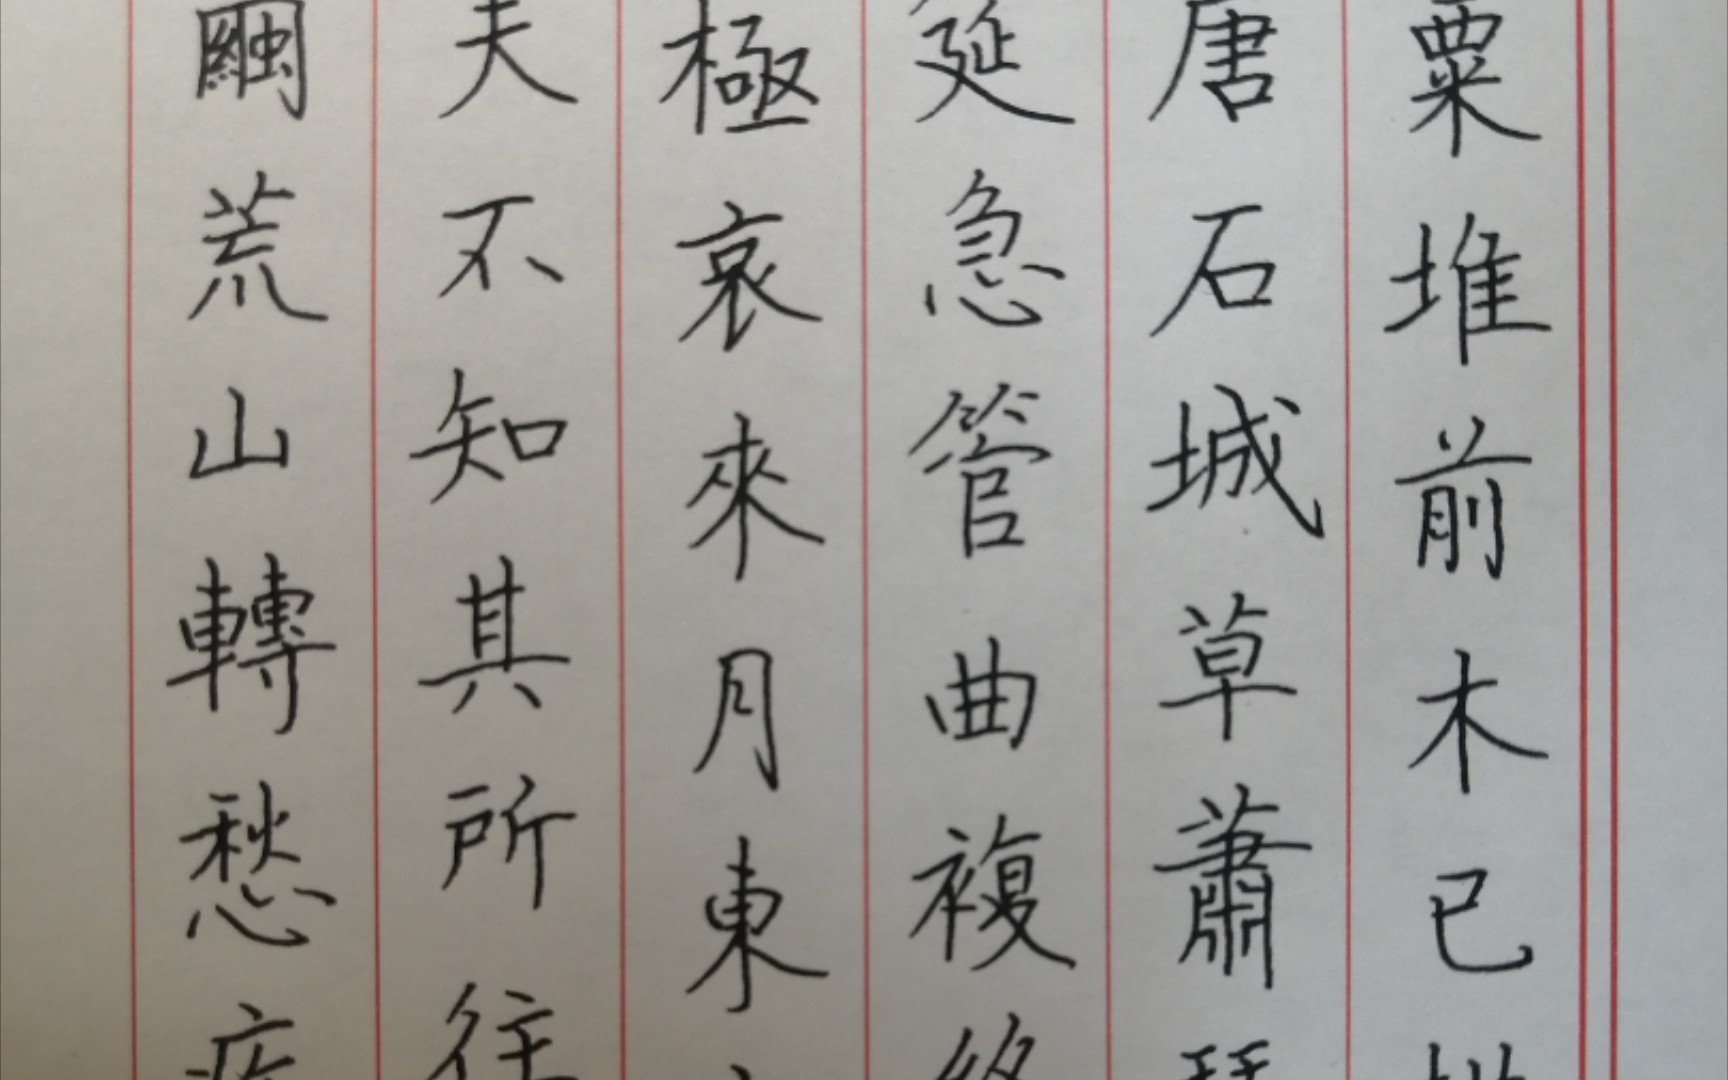 粟堆前木已
唐石城草蕭
筵急管曲複
極哀來月東
夫不知其所往
繭荒山轉愁疾